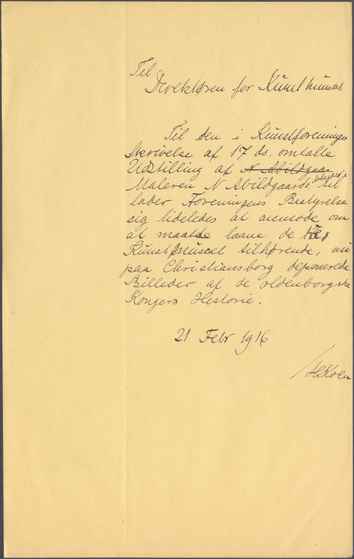 Til
Direktøren for Kunstmuseet
Til den i Kunstforeningens
Skrivelse af 17 ds. omtalte
Udstilling af N Abildgaa
Maleren N Abildgaards til
lader Foreningens Bestyrelse
sig ligeledes at anmode om
at maatte laane de
Kunstmuseet tilhørende, nu
paa Christiansborg deponerede
Billeder af de oldenborgske
Kongers Historie.
21 Febr 1916